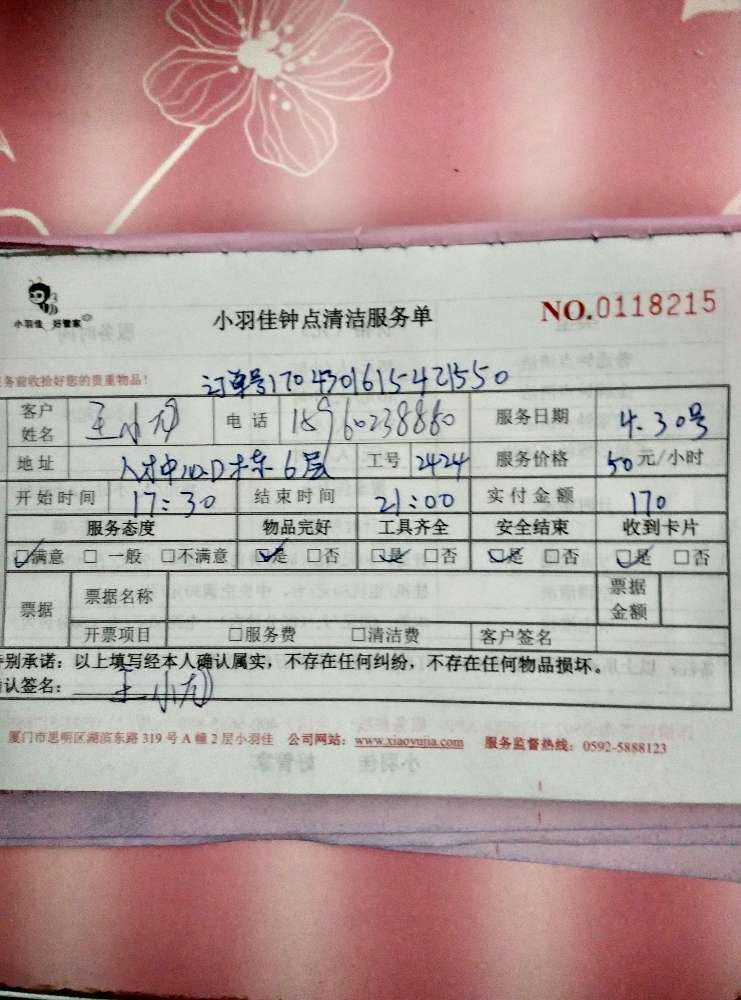 小羽佳 好管家
小羽佳钟点清洁服务单
NO.0118215
务前收拾好您的贵重物品!
订单号1704301615421550
客户姓名 王小 电话 15960238860 服务日期 4.30号
地址 人才中心D栋6层 工号 2424 服务价格 50元/小时
开始时间 17:30 结束时间 21:00 实付金额 170
服务态度 物品完好 工具齐全 安全结束 收到卡片
☑满意 □一般 □不满意 ☑是 □否 ☑是 □否 ☑是 □否 ☑是 □否
票据 票据名称 票据金额
开票项目 □服务费 □清洁费 客户签名
别承诺:以上填写经本人确认属实,不存在任何纠纷,不存在任何物品损坏。
认签名: 王小
厦门市思明区湖滨东路319号A幢2层小羽佳 公司网站:www.xiaoyujia.com 服务监督热线:0592-5888123